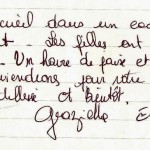 cueil dans un cad
t. Les filles ont
. Un havre de paix et
viendrons pour votre
tillerie et bientôt.
Graziella E